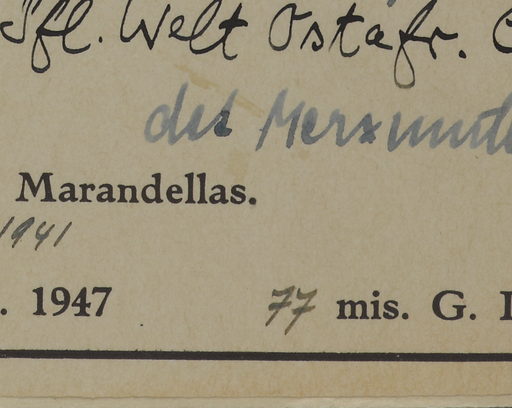 Pfl. Welt Ostafr.
det Merxmüller
Marandellas.
1941
. 1947 77 mis. G.